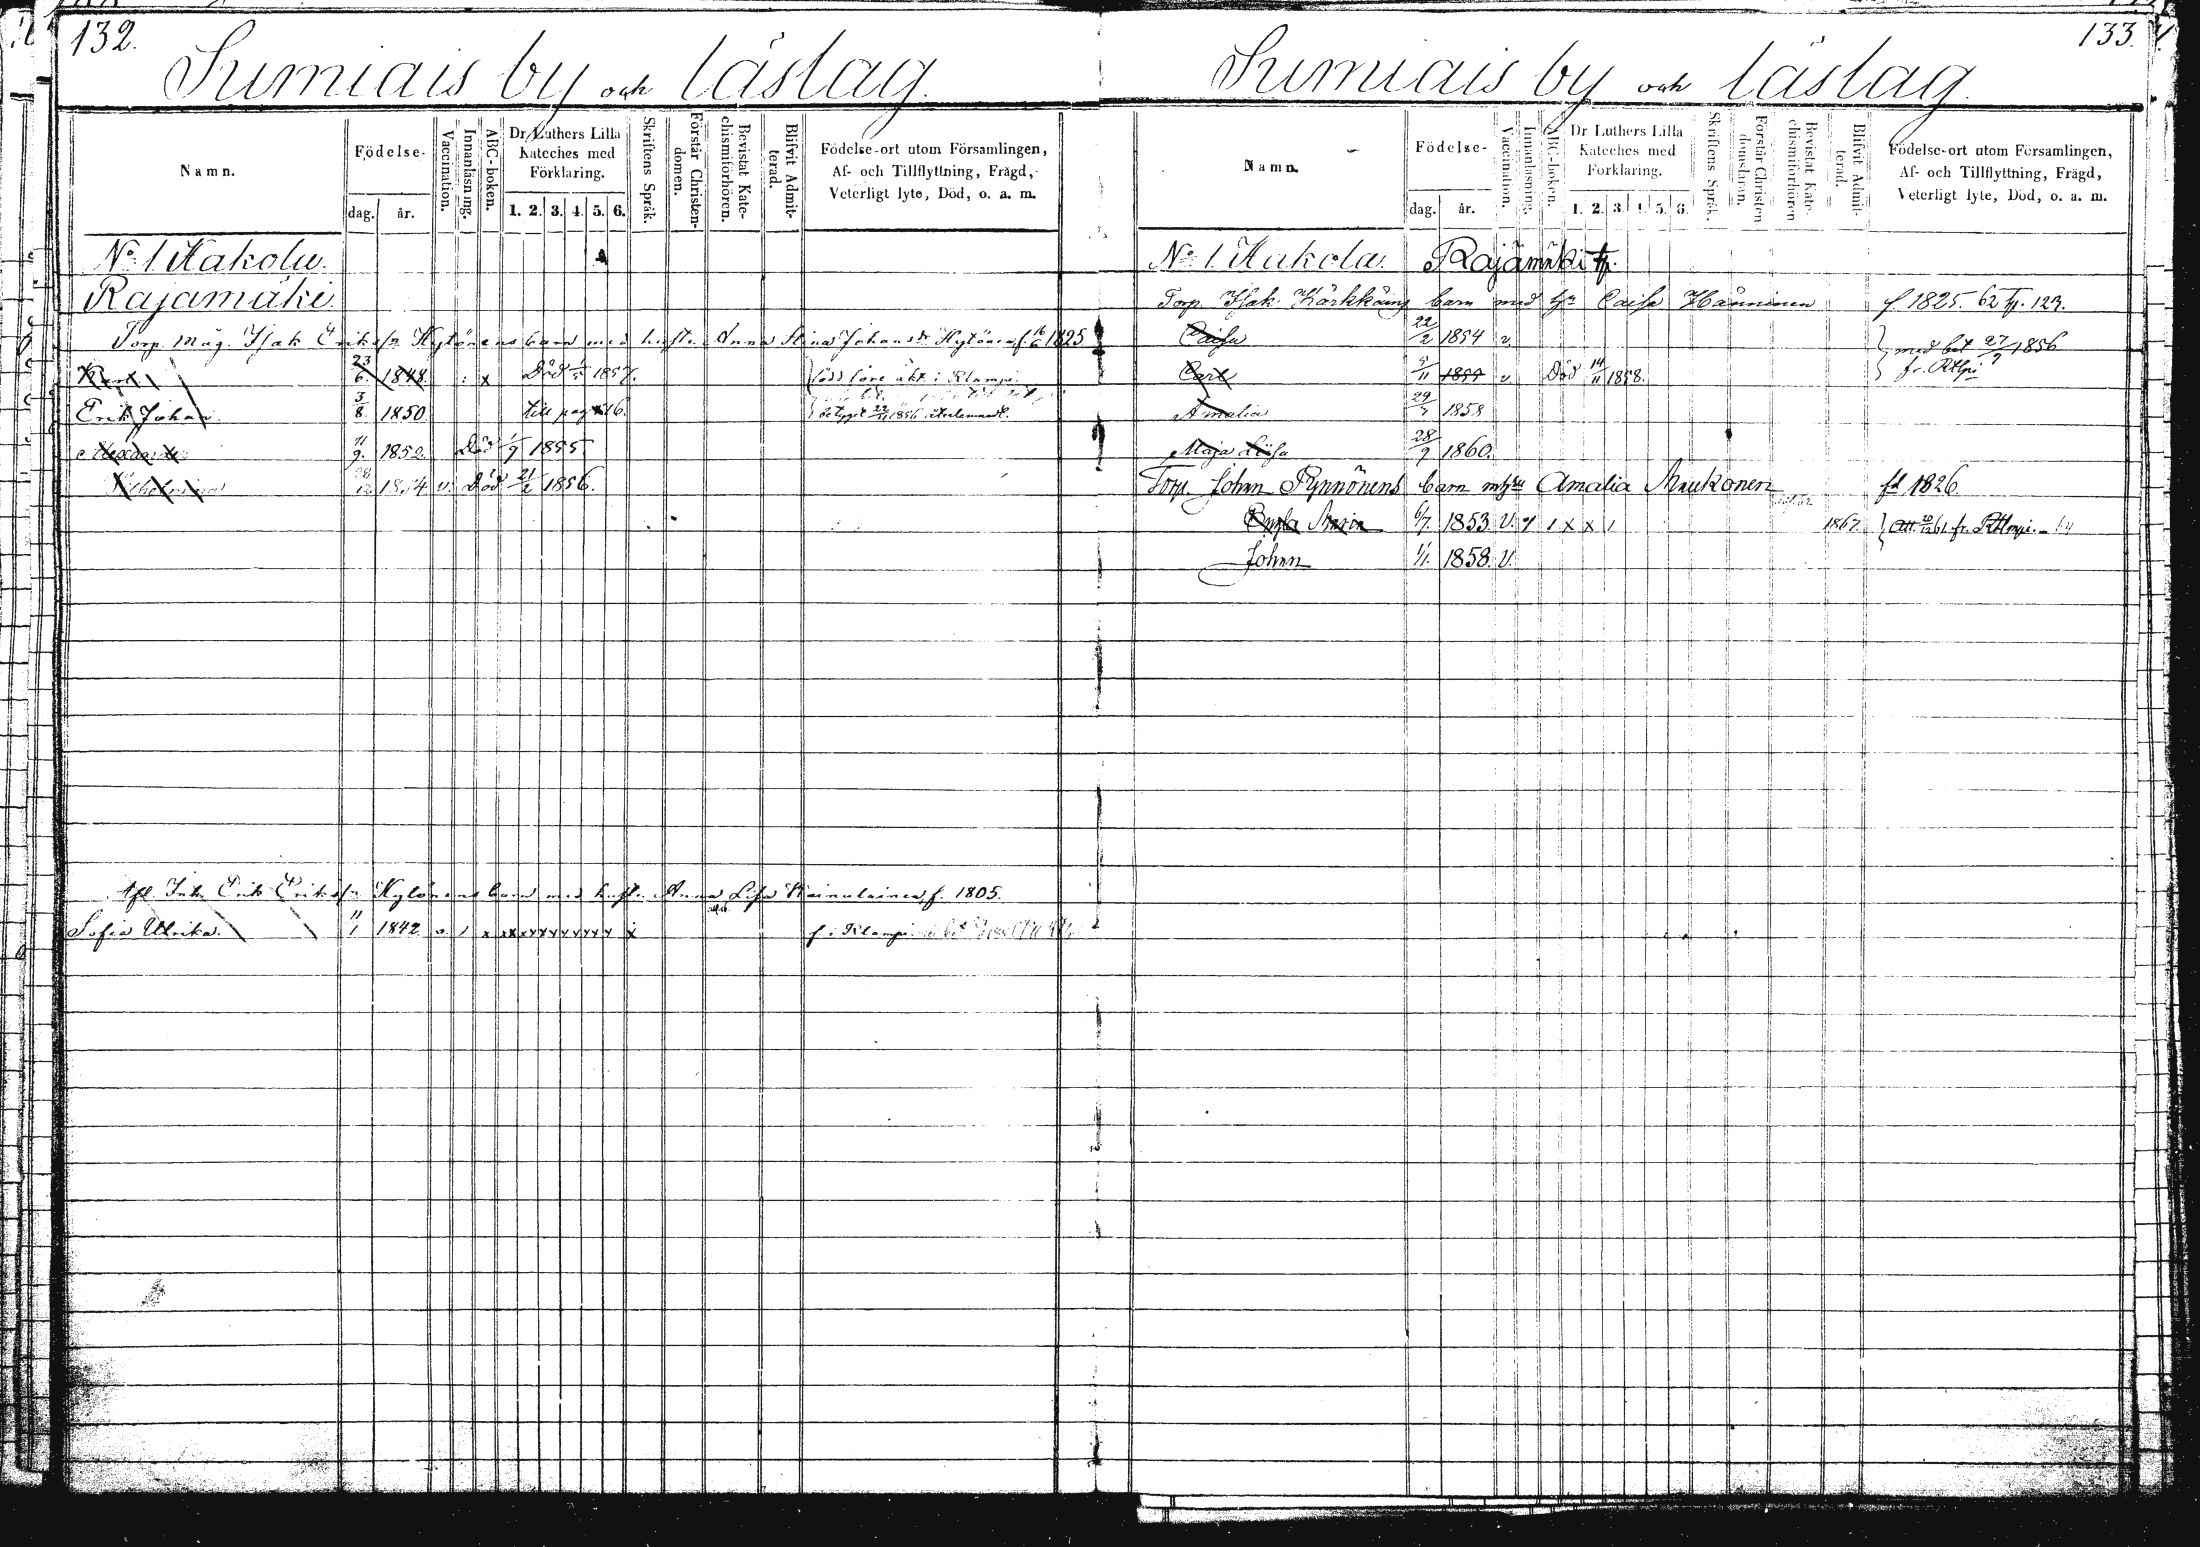 132.
Sumiais by och läslag.
Namn.
Födelse-
dag. år.
Vaccination.
Innanläsning.
ABC-boken.
Dr Luthers Lilla Kateches med Förklaring.
1. 2. 3. 4. 5. 6.
Skriftens Språk.
Förstår Christendomen.
Bevistat Katechismiförhören.
Blifvit Admitterad.
Födelse-ort utom Församlingen,
Af- och Tillflyttning, Frägd,
Veterligt lyte, Död, o. a. m.
No 1 Hakola.
Rajamäki.
Torp. måg. Isak Eriksn Hytönens barn med hustr. Anna Stina Johansdr Hytönen f. 16/6 1825
23/6. 1848. x Död 1857. född före äkt. i Klampi
Erik Johan 3/8. 1850 till pag 16.
Alexander 11/9. 1852. Död 1/9 1855
Wilhelmina 28/12 1854 v. Död 21/2 1856.
Afl. Inh. Erik Eriksn Hytönens barn med hustr. Anna Lisa Kainulainen f. 1805.
Sofia Ulrika. 11/1 1842 v. / x x x x x x x x x x x f. i Klampi
133.
Sumiais by och läslag.
Namn.
Födelse-
dag. år.
Vaccination.
Innanläsning.
ABC-boken.
Dr Luthers Lilla Kateches med Förklaring.
1. 2. 3. 4. 5. 6.
Skriftens Språk.
Förstår Christendomsläran.
Bevistat Katechismiförhören
Blifvit Admitterad.
Födelse-ort utom Församlingen,
Af- och Tillflyttning, Frägd,
Veterligt lyte, Död, o. a. m.
No 1. Hakola. Rajamäki tp.
Torp. Isak Kärkkäinens barn med h. Caisa Hänninen f 1825. 62 tp. 123.
Caisa 22/2 1854 v. med bet 27/9 1856
Carl 5/11 1855 v Död 14/11 1858. fr. Rtlpi
Amalia 29/5 1858
Maja Lisa 28/9 1860.
Torp. Johan Pynnönens barn m hu Amalia Maukonen fd 1826.
Maria 6/7. 1853. V. 1 x x 1 1867. Att. 20/12 61 fr.
Johan 1/1. 1858. V.